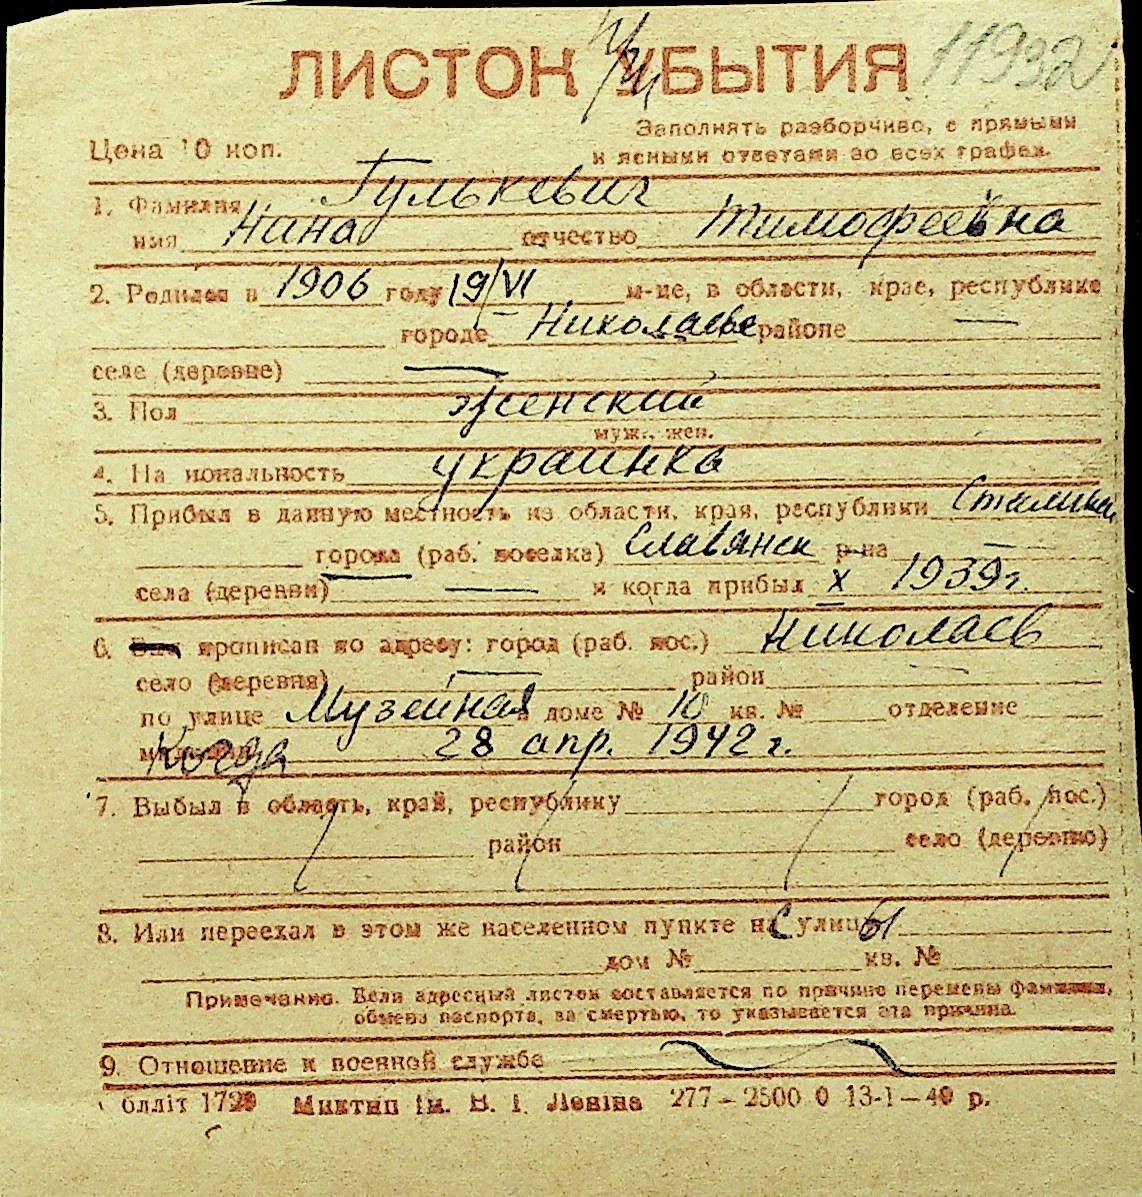 11932
ЛИСТОК УБЫТИЯ
Цена 10 коп.
Заполнять разборчиво, с прямыми
и ясными ответами во всех графах.
1. Фамилия Гулькевич
имя Нина отчество Тимофеевна
2. Родился в 1906 году 19/VI м-це, в области, крае, республике
городе Николаеве районе —
селе (деревне) —
3. Пол женский
муж., жен.
4. Национальность украинка
5. Прибыл в данную местность из области, края, республики Сталинской
города (раб. поселка) Славянск р-на —
села (деревни) — и когда прибыл X 1939 г.
6. Был прописан по адресу: город (раб. пос.) Николаев
село (деревня) — район —
по улице Музейная в доме № 10 кв. № отделение
Когда 28 апр. 1942 г.
7. Выбыл в область, край, республику город (раб. пос.)
район село (деревню)
8. Или переехал в этом же населенном пункте на с улицы
дом № кв. №
Примечание. Если адресный листок составляется по причине перемены фамилии,
обмена паспорта, за смертью, то указывается эта причина.
9. Отношение к военной службе
блліт 1729 Миктип ім. В. І. Леніна 277 – 2500 0 13-1 – 40 р.